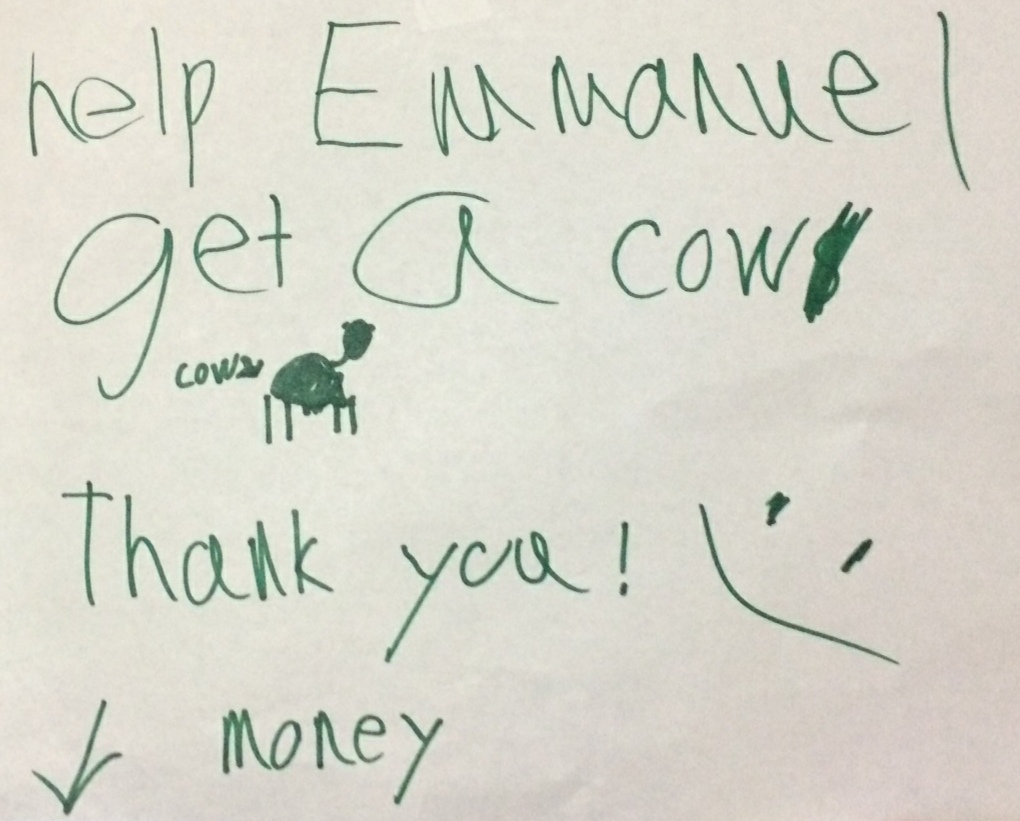 help Emmanuel
get a cow
cow
Thank you!
money